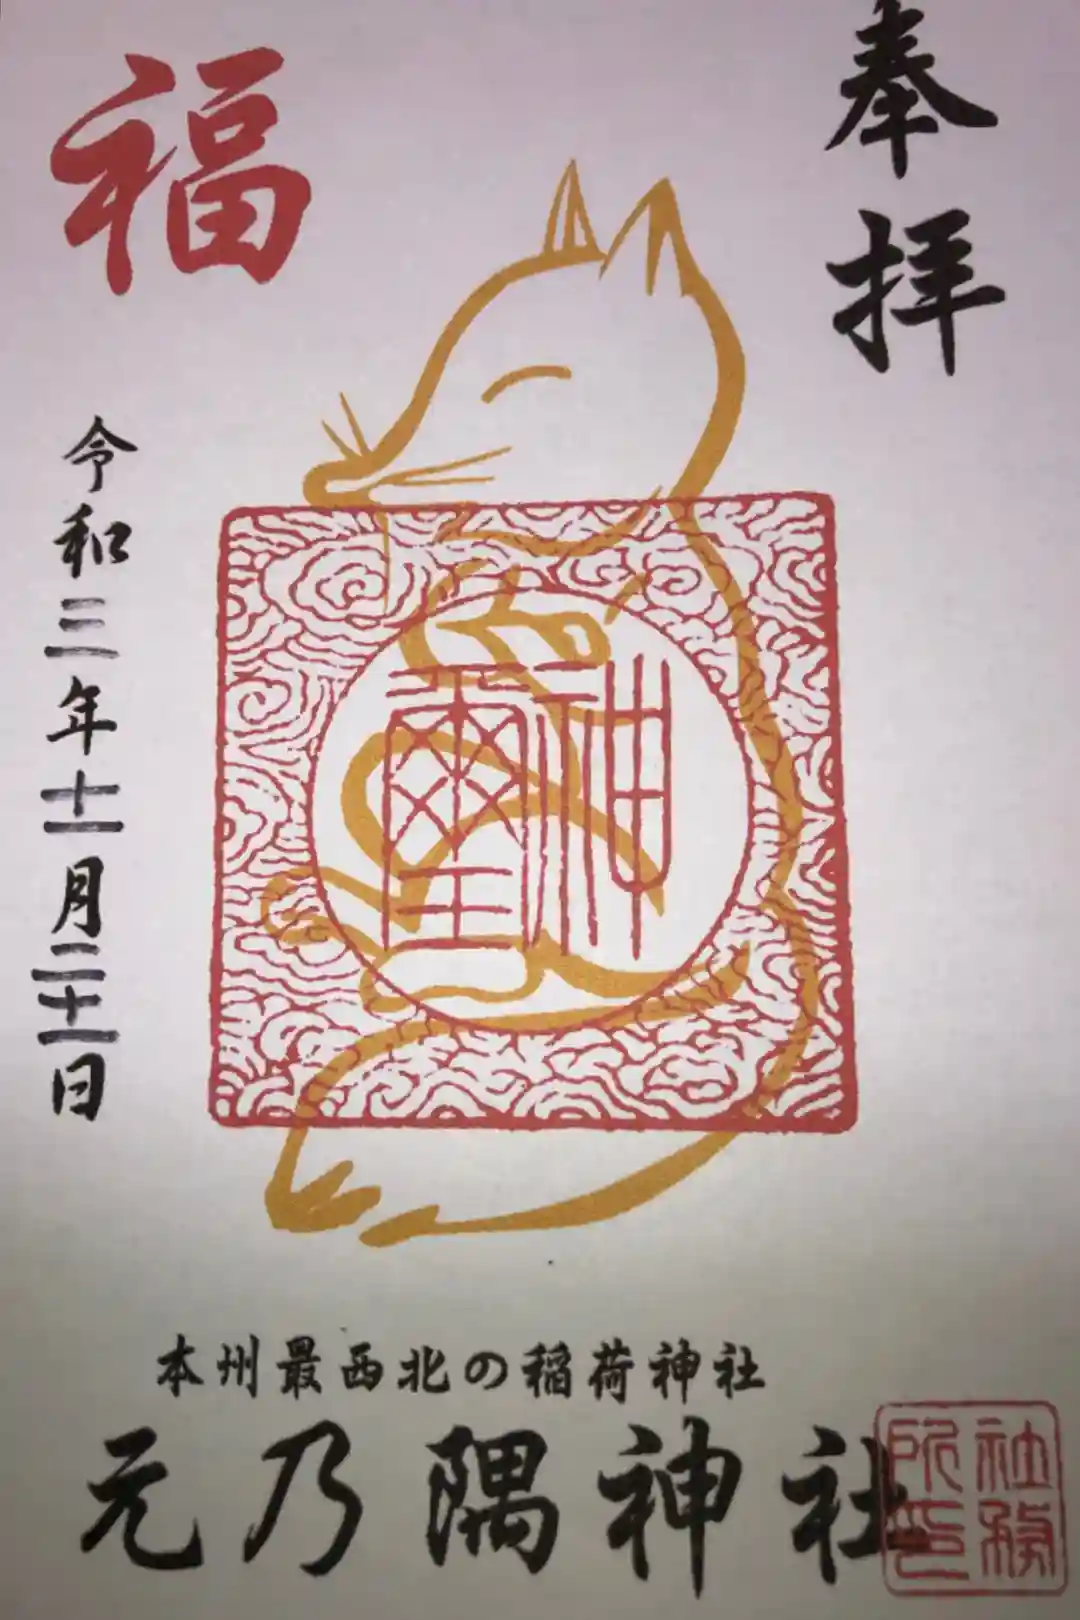 奉拝
福
神璽
令和三年十一月二十一日
本州最西北の稲荷神社
元乃隅神社
社務所印